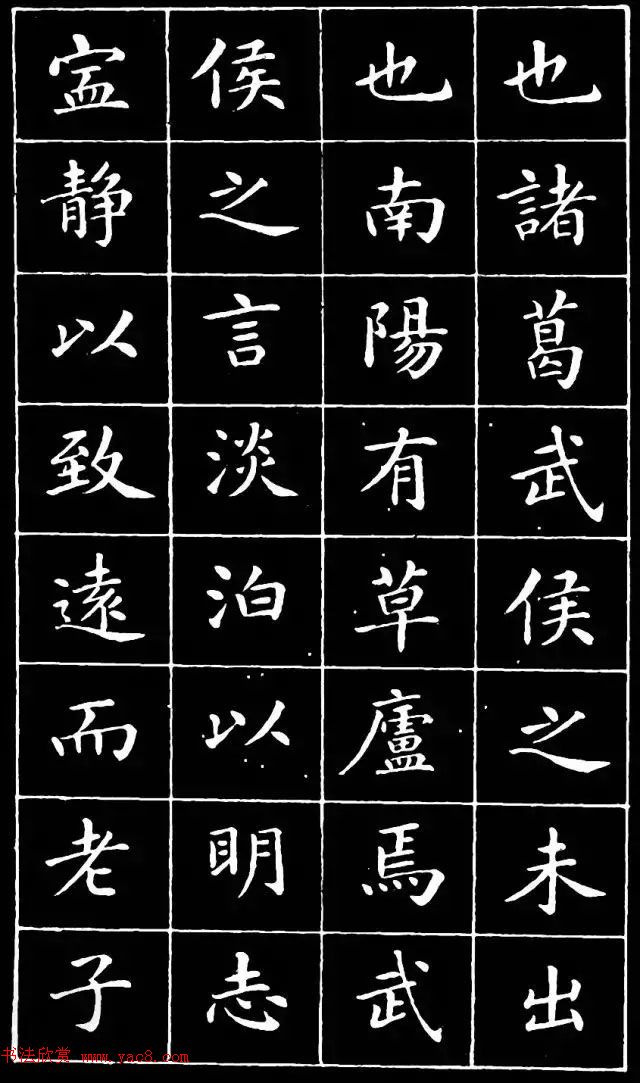 也諸葛武侯之未出
也南陽有草廬焉武
侯之言淡泊以明志
寍静以致遠而老子
书法欣赏 www.yac8.com